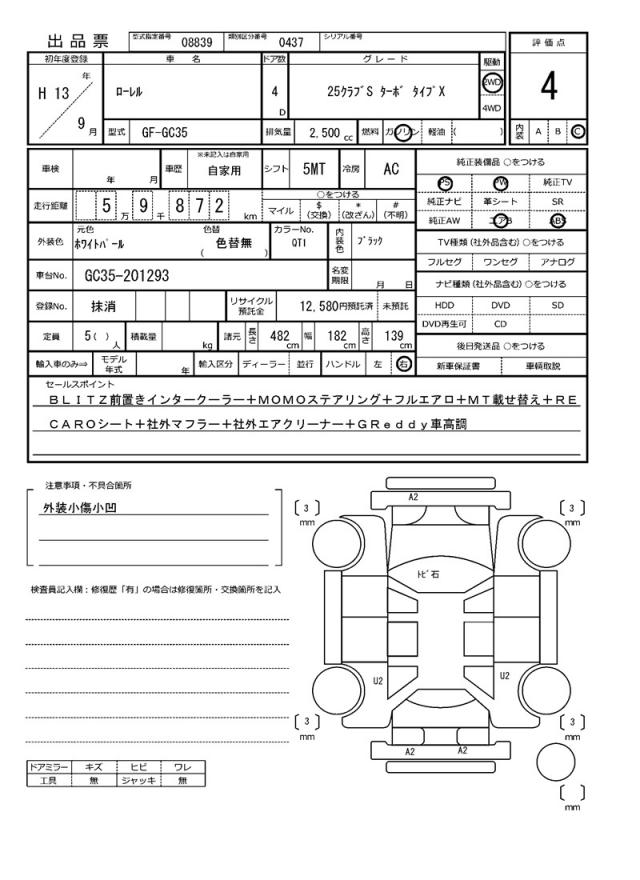 出品票
型式指定番号 08839 類別区分番号 0437 シリアル番号
評価点
4
初年度登録 車名 ドア数 グレード 駆動
H 13 年 9 月
ローレル
4 D
25クラブS ターボ タイプX
2WD
4WD
型式 GF-GC35 排気量 2,500 cc 燃料 ガソリン 軽油 ( )
内装 A B C
車検 年 月 車歴 ※未記入は自家用 自家用 シフト 5MT 冷房 AC
純正装備品 ○をつける
PS PW 純正TV
純正ナビ 革シート SR
純正AW エアB ABS
走行距離 5 万 9 千 8 7 2 km
○をつける
マイル $ (交換) * (改ざん) # (不明)
外装色 元色 ホワイトパール 色替 ( 色替無 ) カラーNo. QT1 内装色 ブラック
TV種類(社外品含む)○をつける
フルセグ ワンセグ アナログ
車台No. GC35-201293 名変期限 月 日
ナビ種類(社外品含む)○をつける
HDD DVD SD
DVD再生可 CD
登録No. 抹消 リサイクル預託金 12,580円預託済 未預託
定員 5( ) 人 積載量 kg 諸元 長さ 482 cm 幅 182 cm 高さ 139 cm
後日発送品 ○をつける
新車保証書 車輌取説
輸入車のみ⇒ モデル年式 年 輸入区分 ディーラー 並行 ハンドル 左 右
セールスポイント
ＢＬＩＴＺ前置きインタークーラー＋ＭＯＭＯステアリング＋フルエアロ＋ＭＴ載せ替え＋ＲＥ
ＣＡＲＯシート＋社外マフラー＋社外エアクリーナー＋ＧＲｅｄｄｙ車高調
注意事項・不具合箇所
外装小傷小凹
検査員記入欄：修復歴「有」の場合は修復箇所・交換箇所を記入
A2
〔 3 〕 mm
〔 3 〕 mm
トビ石
U2
U2
〔 3 〕 mm
〔 3 〕 mm
A2 A2
〔 〕 mm
ドアミラー キズ ヒビ ワレ
工具 無 ジャッキ 無